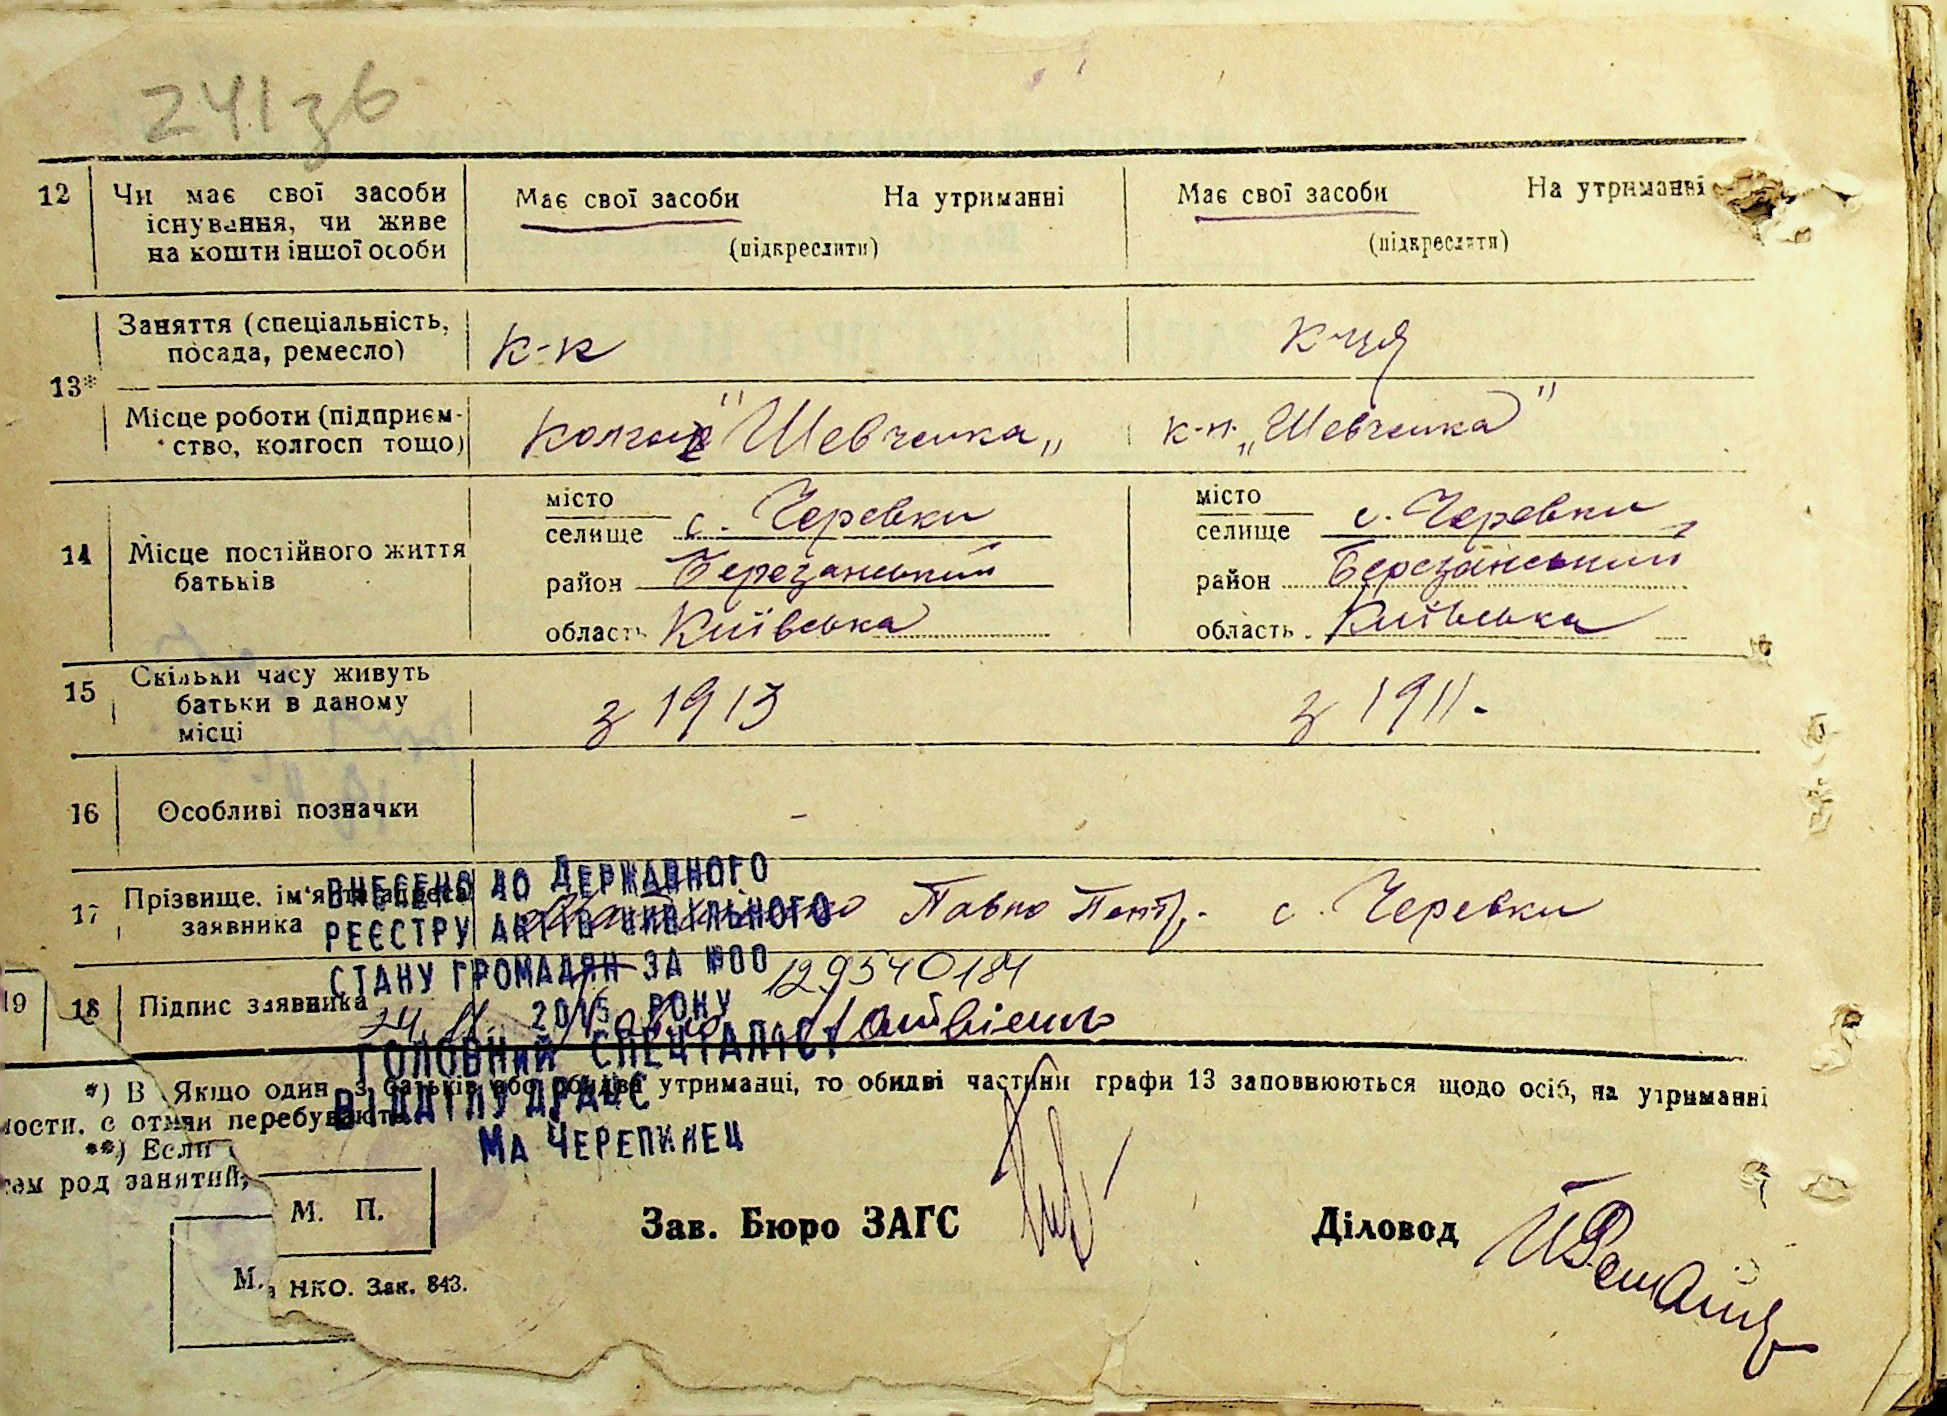 241зв
12 Чи має свої засоби Має свої засоби На утриманні Має свої засоби На утриманні
існування, чи живе (підкреслити) (підкреслити)
на кошти іншої особи
13* Заняття (спеціальність, к-к к-ця
посада, ремесло)
Місце роботи (підприєм- колгосп "Шевченка" к-п. "Шевченка"
ство, колгосп тощо)
14 Місце постійного життя батьків
місто місто
селище с. Черевки селище с. Черевки
район Березанський район Березанський
область Київська область Київська
15 Скільки часу живуть з 1913 з 1911.
батьки в даному
місці
16 Особливі позначки –
17 Прізвище, ім'я та адреса Павло с. Черевки
заявника
ВНЕСЕНО ДО ДЕРЖАВНОГО
РЕЄСТРУ АКТІВ ЦИВІЛЬНОГО
СТАНУ ГРОМАДЯН ЗА №00 129540184
24. 11. 2015 РОКУ
ГОЛОВНИЙ СПЕЦІАЛІСТ
ВІДДІЛУ ДРАЦС
МА ЧЕРЕПИНЕЦ
19 18 Підпис заявника
*) В Якщо один з батьків або обидва утриманці, то обидві частини графи 13 заповнюються щодо осіб, на утриманні
ности. с отмян перебувають
**) Если
тем род занятий,
М. П.
Зав. Бюро ЗАГС Діловод
М. НКО. Зак. 843.